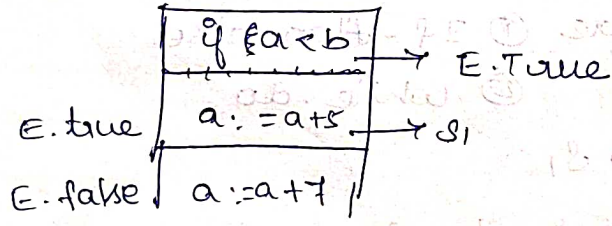 if a<b → E.True
E.true a:=a+5 → S1
E.false a:=a+7